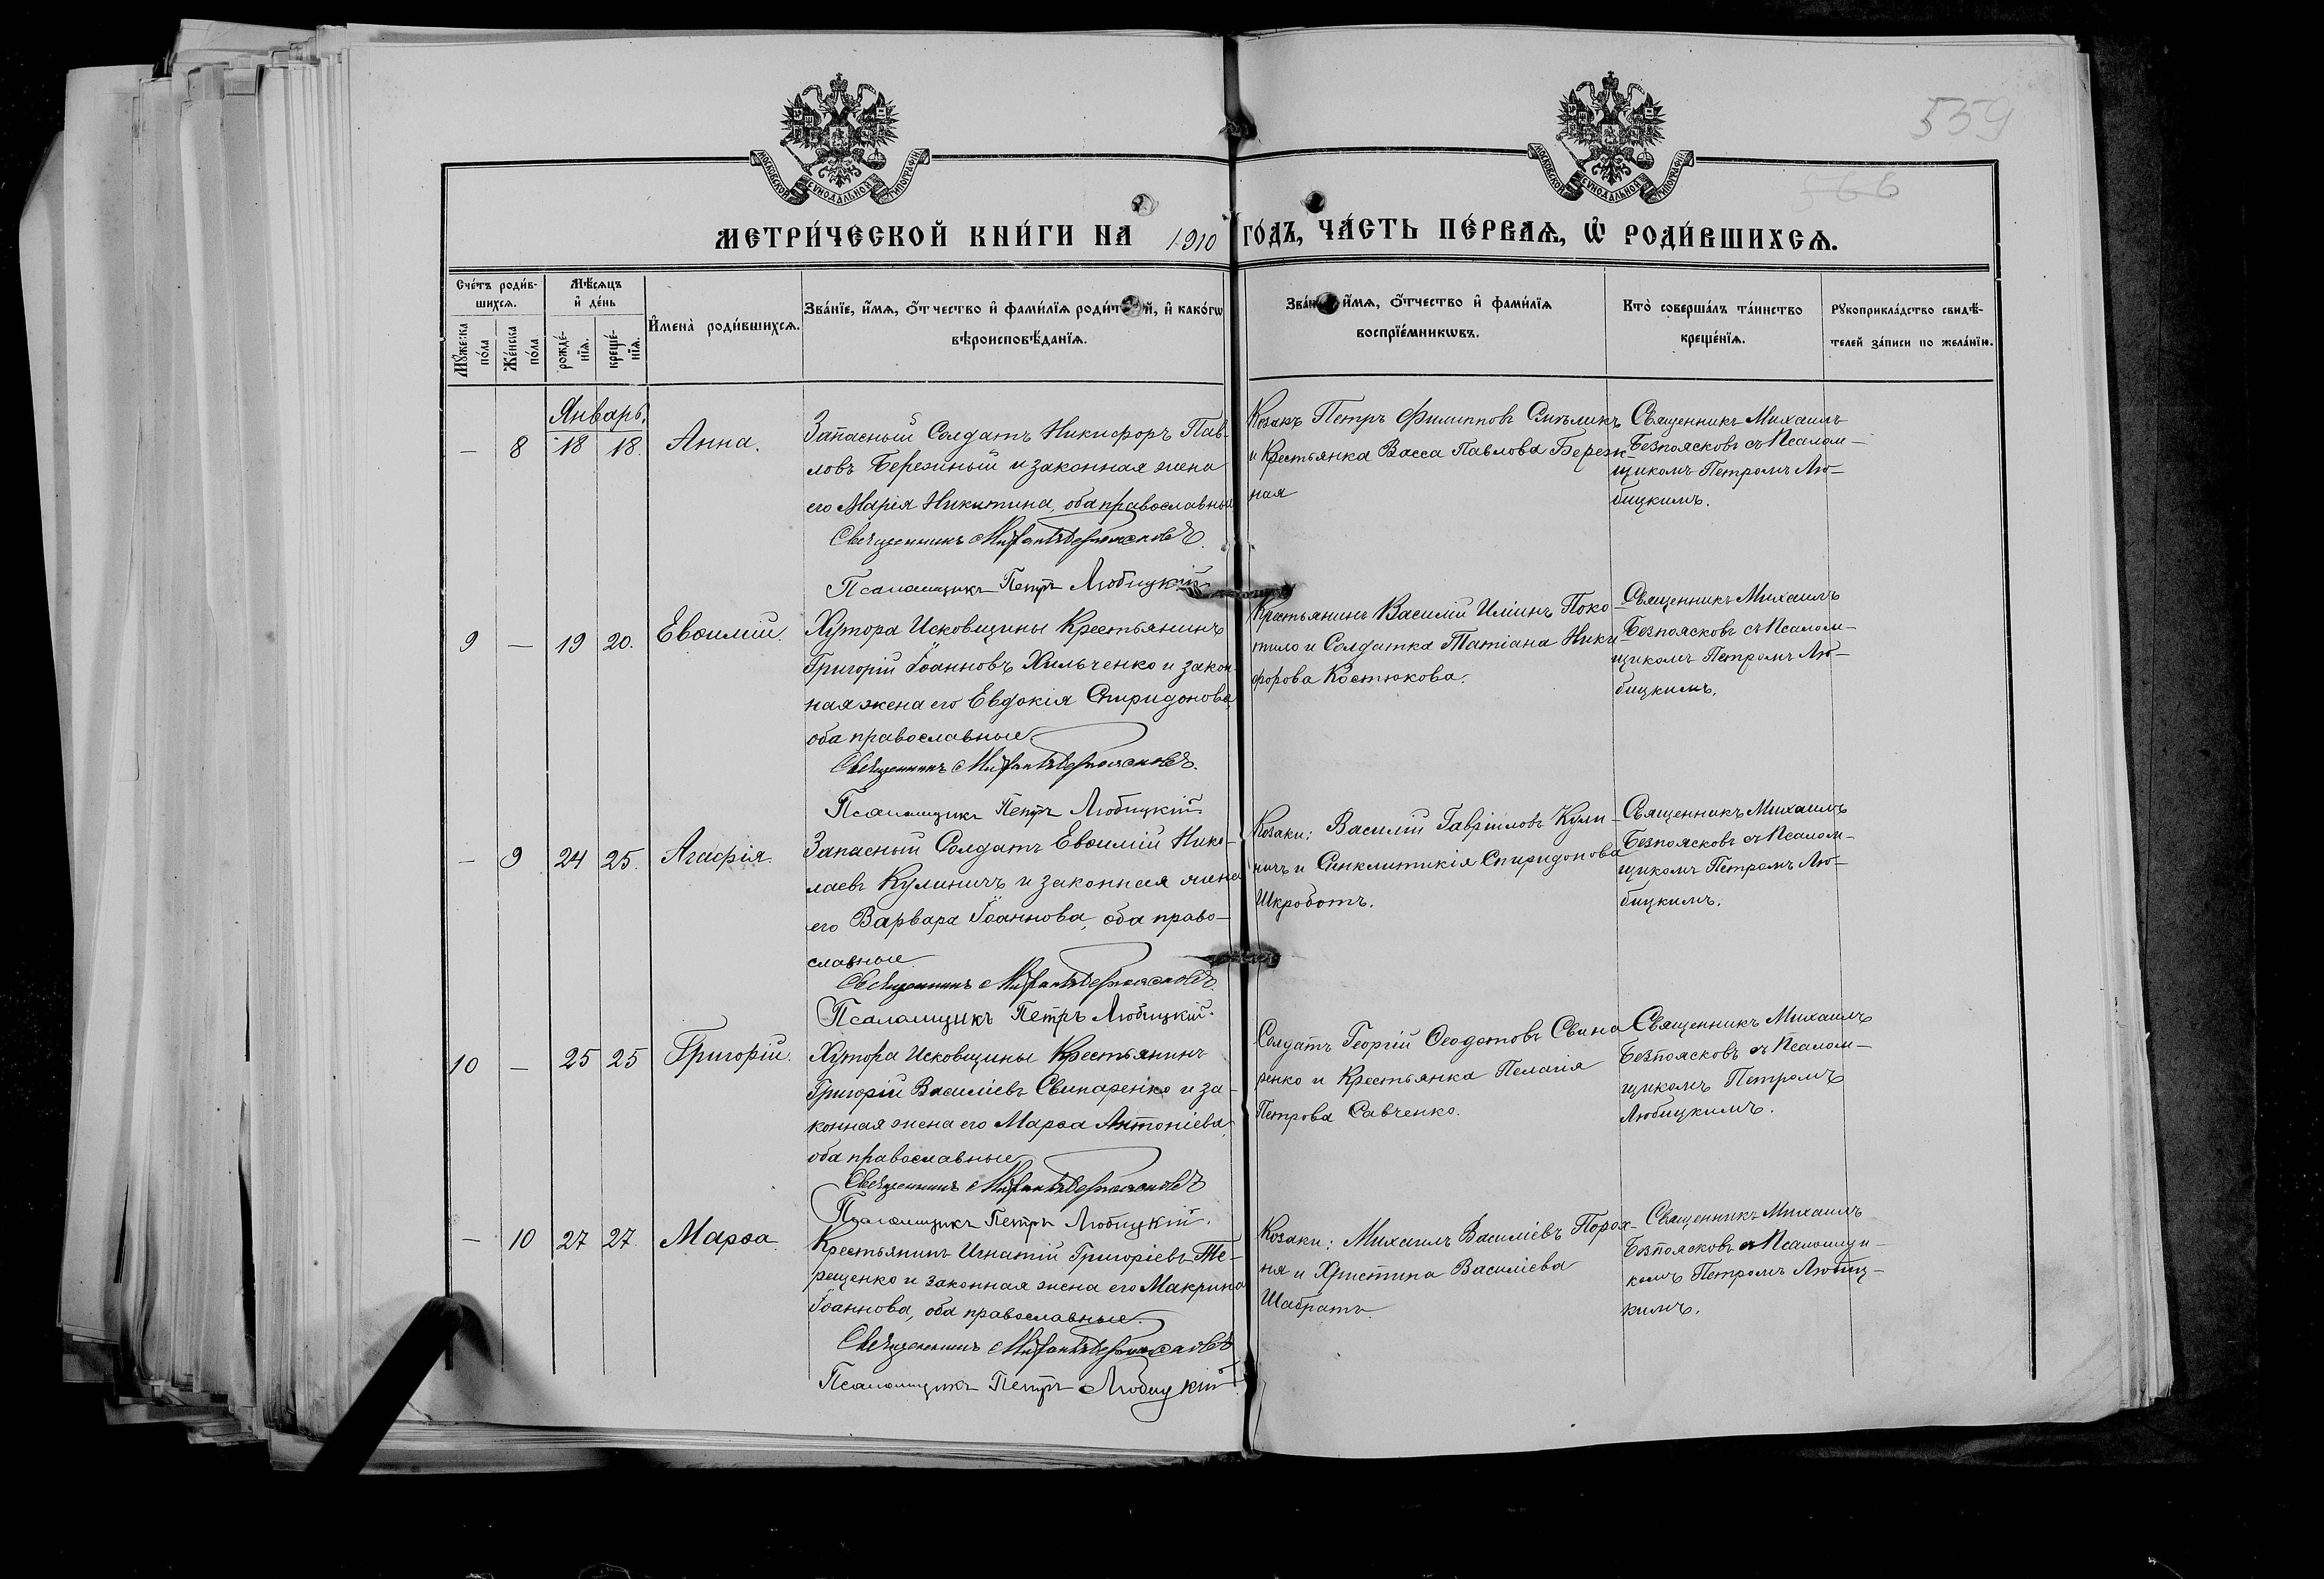 МОСКОВСКОЙ СУНОДАЛЬНОЙ ТИПОГРАФІИ
МОСКОВСКОЙ СУНОДАЛЬНОЙ ТИПОГРАФІИ
559
566
МЕТРИ́ЧЕСКОЙ КНИ́ГИ НА 1910 ГО́ДЪ, ЧА́СТЬ ПЕ́РВАѦ, Ѡ҆ РОДИ́ВШИХСѦ.
Сче́тъ роди́в-
шихсѧ.
Мꙋ́жеска
по́ла
Же́нска
по́ла
Мѣ́сѧцъ
и҆ де́нь
рожде́-
нїѧ.
креще́-
нїѧ.
И҆мена̀ роди́вшихсѧ.
Зва́нїе, и҆́мѧ, ѻ҆́тчество и҆ фами́лїѧ роди́т й, и҆ како́гѡ
вѣроисповѣ́данїѧ.
Зва́н и҆́мѧ, ѻ҆́тчество и҆ фами́лїѧ
воспрїе́мникѡвъ.
Кто̀ соверша́лъ та́инство
креще́нїѧ.
Рꙋкоприкла́дство свидѣ́-
телей за́писи по жела́нїю.
Январь.
— 8 18 18. Анна.
Запасный Солдатъ Никифоръ Пав-
ловъ Бережный и законная жена
его Марія Никитина, оба православные
Священникъ Михаилъ Безпоясковъ.
Псаломщикъ Петръ Любицкій.
Козакъ Петръ Филипповъ Смѣликъ
и Крестьянка Васса Павлова Береж-
ная
Священникъ Михаилъ
Безпоясковъ съ Псалом-
щикомъ Петромъ Лю-
бицкимъ.
9 — 19 20. Евѳимій.
Хутора Исковщины Крестьянинъ
Григорій Іоанновъ Хильченко и закон-
ная жена его Евдокія Спиридонова,
оба православные.
Священникъ Михаилъ Безпоясковъ.
Псаломщикъ Петръ Любицкій.
Крестьянинъ Василій Иліинъ Поко-
тило и Солдатка Татіана Ники-
форова Костюкова.
Священникъ Михаилъ
Безпоясковъ съ Псалом-
щикомъ Петромъ Лю-
бицкимъ.
— 9 24 25. Агафія.
Запасный Солдатъ Евѳимій Нико-
лаевъ Кулиничъ и законная жена
его Варвара Іоаннова, оба право-
славные.
Священникъ Михаилъ Безпоясковъ.
Псаломщикъ Петръ Любицкій.
Козаки: Василій Гавріиловъ Кули-
ничъ и Синклитикія Спиридонова
Шкроботъ.
Священникъ Михаилъ
Безпоясковъ съ Псалом-
щикомъ Петромъ Лю-
бицкимъ.
10 — 25 25 Григорій.
Хутора Исковщины Крестьянинъ
Григорій Василіевъ Свинаренко и за-
конная жена его Марѳа Антоніева,
оба православные
Священникъ Михаилъ Безпоясковъ
Псаломщикъ Петръ Любицкій.
Солдатъ Георгій Ѳеодотовъ Свина
ренко и Крестьянка Пелагія
Петрова Савченко.
Священникъ Михаилъ
Безпоясковъ съ Псалом-
щикомъ Петромъ
Любицкимъ.
— 10 27 27. Марѳа.
Крестьянинъ Игнатій Григоріевъ Те-
рещенко и законная жена его Макрина
Іоаннова, оба православные.
Священникъ Михаилъ Безпоясковъ
Псаломщикъ Петръ Любицкій
Козаки: Михаилъ Василіевъ Порох-
ня и Христина Василіева
Шабратъ.
Священникъ Михаилъ
Безпоясковъ съ Псаломщи-
комъ Петромъ Любиц-
кимъ.